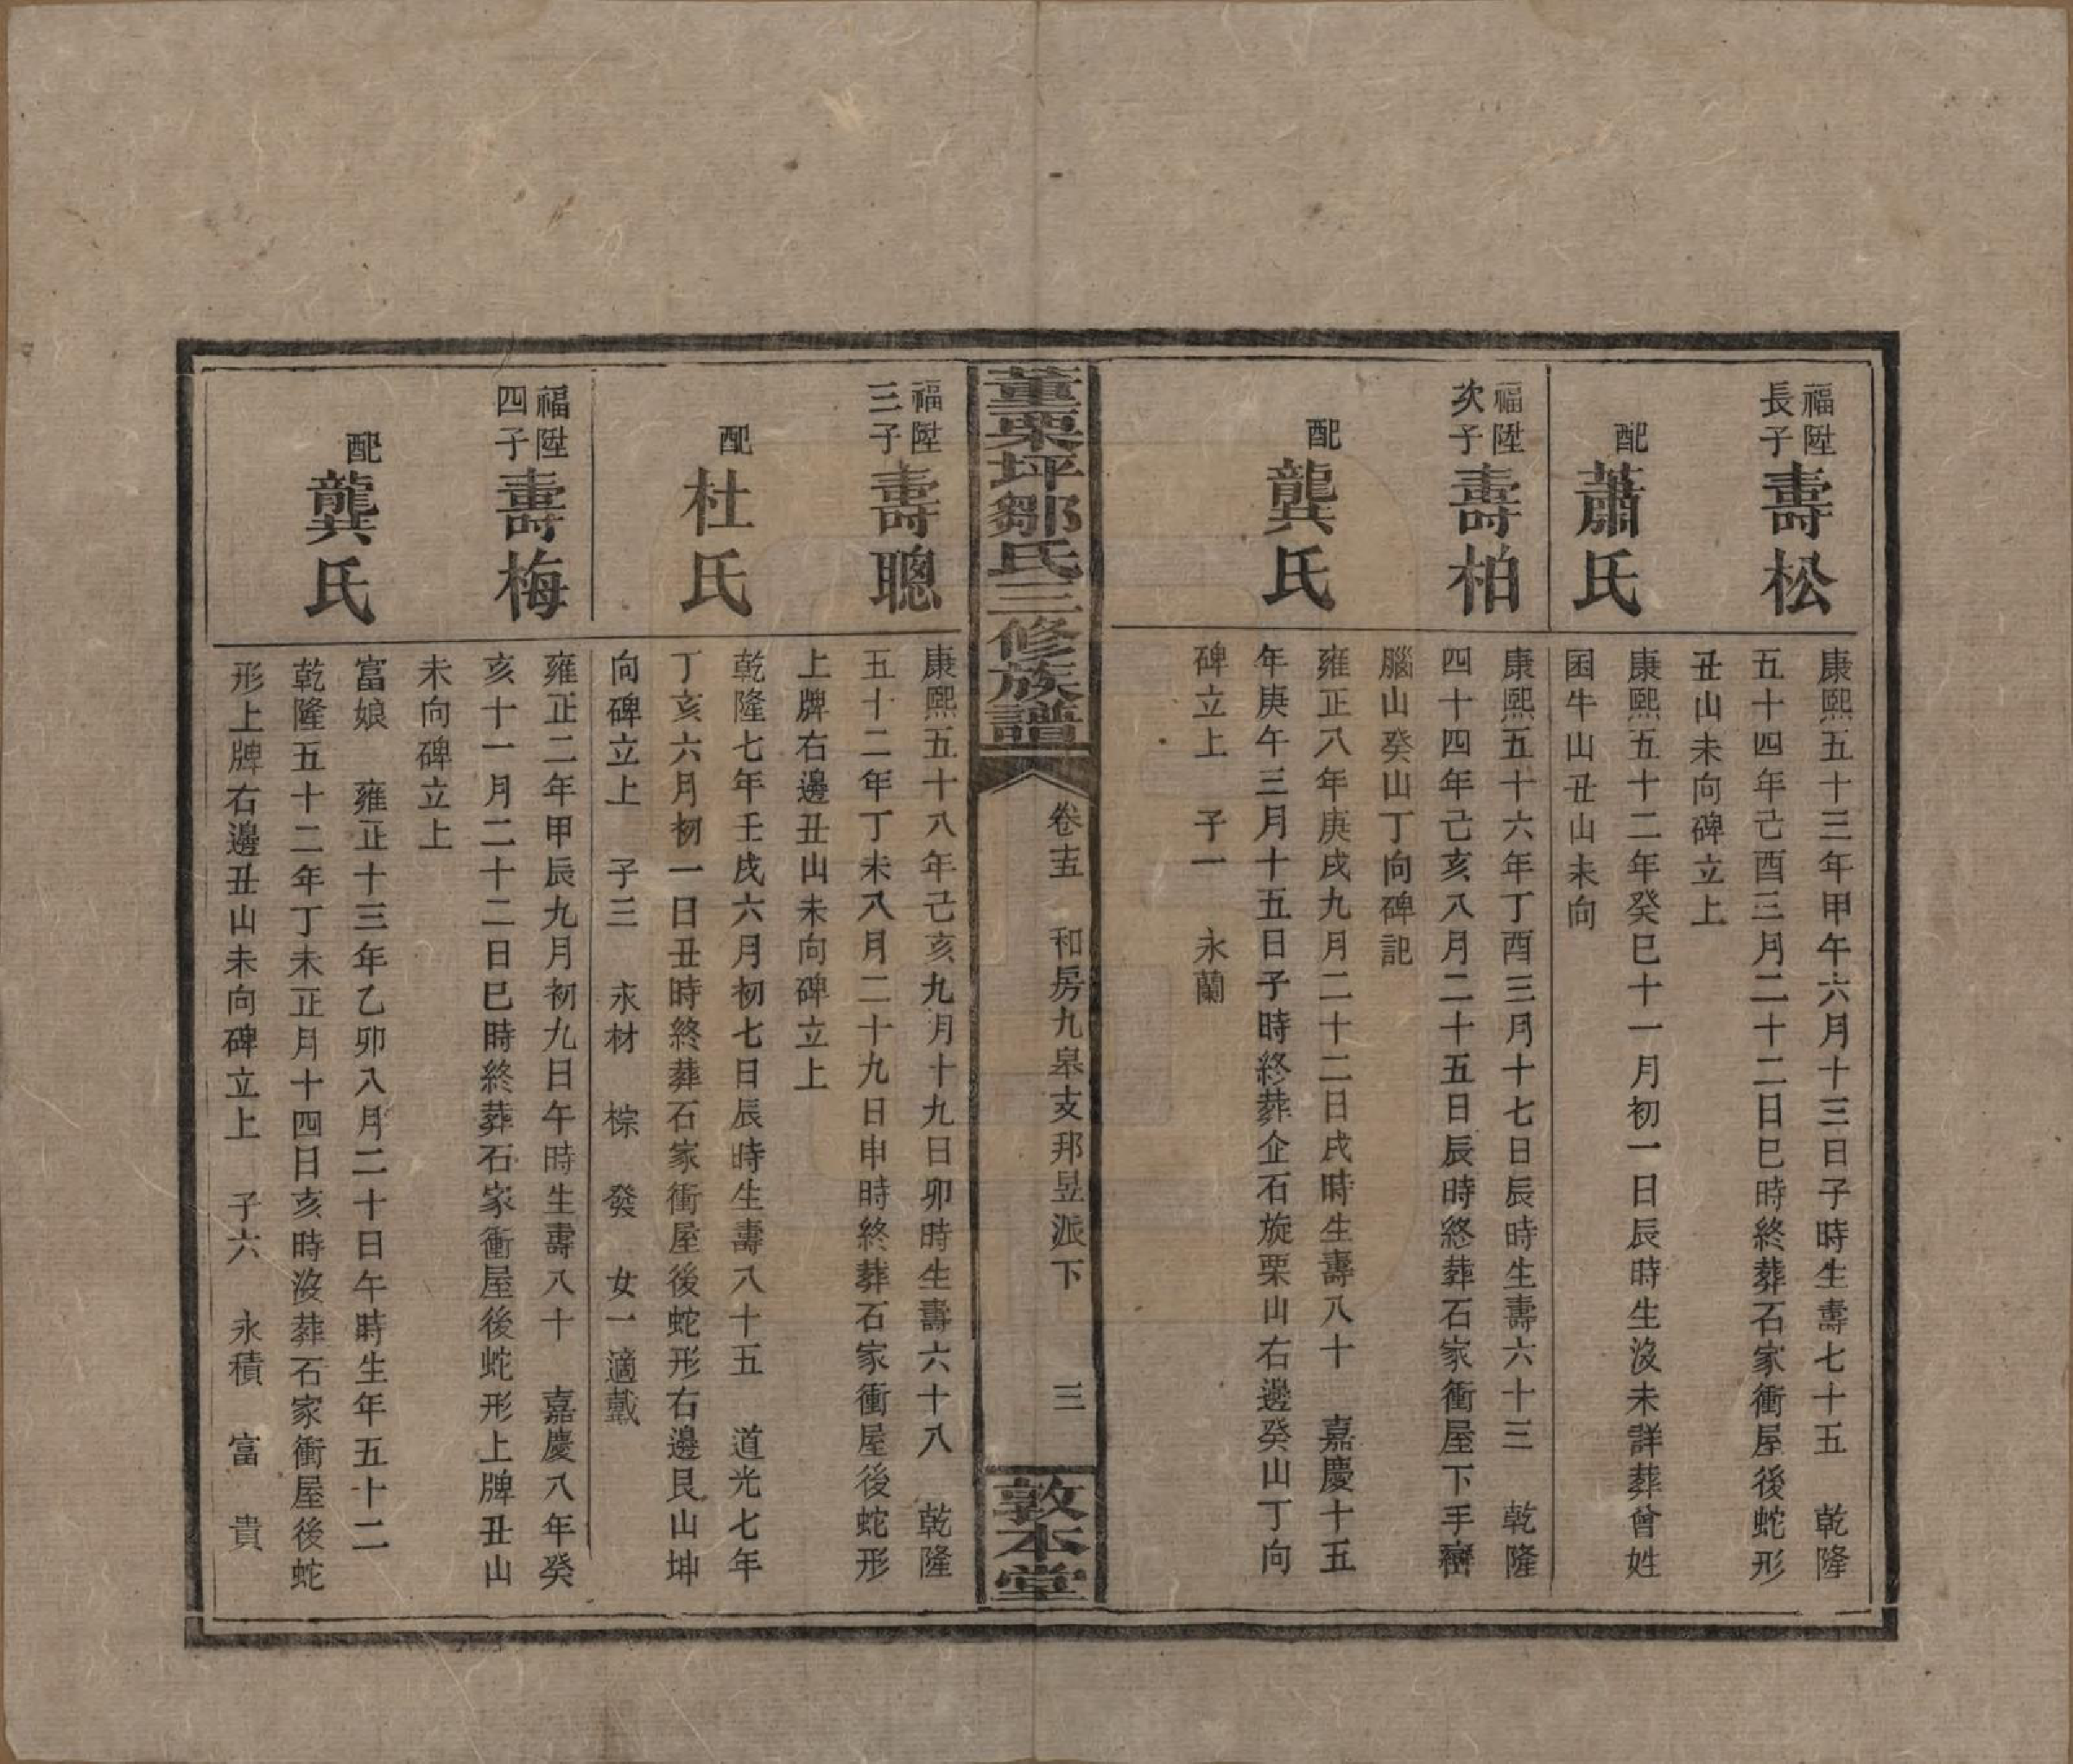 福陞
長子
壽松
康熙五十三年甲午六月十三日子時生壽七十五 乾隆
五十四年己酉三月二十二日巳時終葬石家衝屋後蛇形
丑山未向碑立上
配
蕭氏
康熙五十二年癸巳十一月初一日辰時生沒未詳葬曾姓
困牛山丑山未向
福陞
次子
壽柏
康熙五十六年丁酉三月十七日辰時生壽六十三 乾隆
四十四年己亥八月二十五日辰時終葬石家衝屋下手
腦山癸山丁向碑記
配
龔氏
雍正八年庚戌九月二十二日戌時生壽八十 嘉慶十五
年庚午三月十五日子時終葬企石旋栗山右邊癸山丁向
碑立上 子一 永蘭
董栗坪鄒氏三修族譜
卷十五 和房九皋支邦昱派下 三
敦本堂
福陞
三子
壽聰
康熙五十八年己亥九月十九日卯時生壽六十八 乾隆
五十二年丁未八月二十九日申時終葬石家衝屋後蛇形
上牌右邊丑山未向碑立上
配
杜氏
乾隆七年壬戌六月初七日辰時生壽八十五 道光七年
丁亥六月初一日丑時終葬石家衝屋後蛇形右邊艮山坤
向碑立上 子三 永材 棕 發 女一適戴
福陞
四子
壽梅
雍正二年甲辰九月初九日午時生壽八十 嘉慶八年癸
亥十一月二十二日巳時終葬石家衝屋後蛇形上牌丑山
未向碑立上
配
龔氏
富娘 雍正十三年乙卯八月二十日午時生年五十二
乾隆五十二年丁未正月十四日亥時沒葬石家衝屋後蛇
形上牌右邊丑山未向碑立上 子六 永積 富 貴